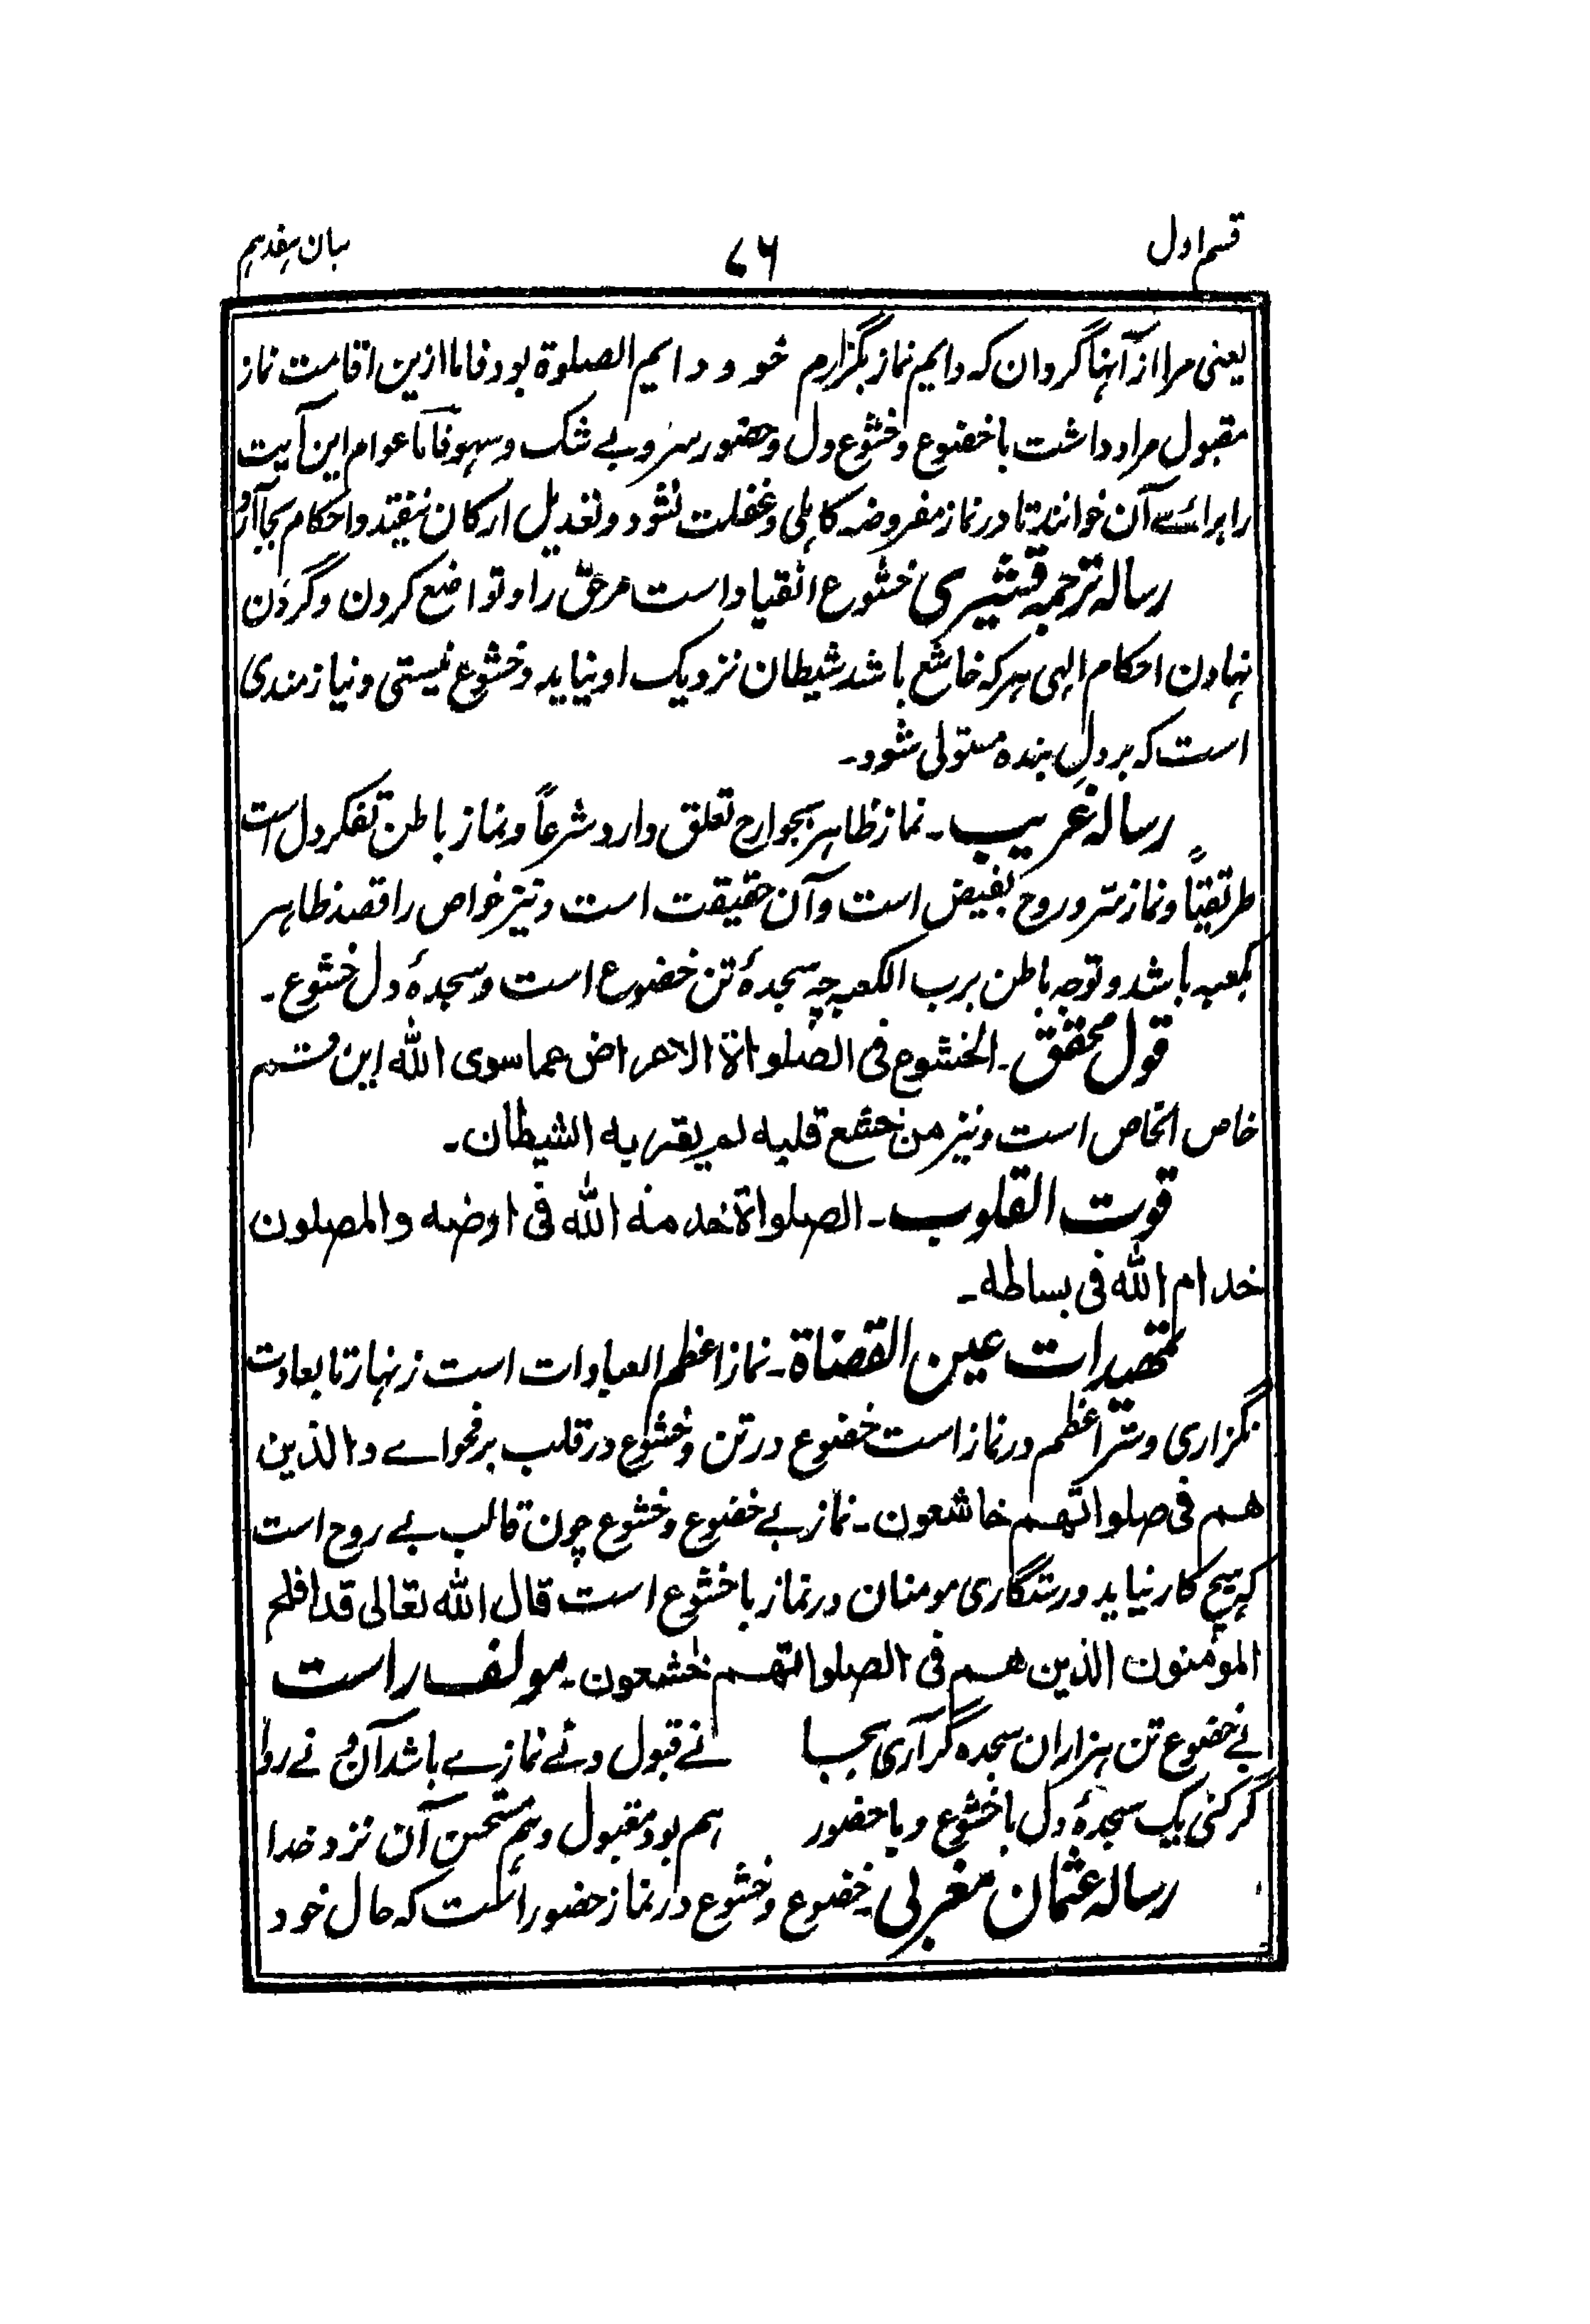 قسم اول ۷۶ بیان ہفدہم
یعنی مرا از آنہا گردان کہ دایم نماز بگزارم خود دایم الصلوٰۃ بود فاما ازین اقامت نماز
مقبول مراد داشت با خضوع و خشوع دل و حضور سر و بے شک و سہو فاما عوام این آیت
را برائے آن خوانند تا در نماز مفروضہ کاہلی و غفلت نشود و تعدیل ارکان نیفتد و احکام بجا آرد
رسالہ ترجمہ قشیری خشوع انقیاد است مر حق را و تواضع کردن و گردن
نہادن احکام الہی ہر کہ خاشع باشد شیطان نزدیک او نیاید و خشوع نیستی و نیازمندی
است کہ بر دل بندہ مستولی شود۔
رسالہ غریب۔ نماز ظاہر بجوارح تعلق دارد شرعاً و نماز باطن تفکر دل است
طریقتاً و نماز سر و روح بفیض است و آن حقیقت است و نیز خواص را قصد ظاہر
بکعبہ باشد و توجہ باطن برب الکعبہ چہ سجدۂ تن خضوع است و سجدۂ دل خشوع۔
قول محقق۔ الخشوع فی الصلواۃ الاعراض عما سوی اللہ این قسم
خاص الخاص است و نیز من خشع قلبہ لم یقربہ الشیطان۔
قوت القلوب۔ الصلواۃ خدمۃ اللہ فی ارضہ والمصلون
خدام اللہ فی بساطہ۔
تمہیدات عین القضاۃ۔ نماز اعظم العبادات است زنہار تا بعادت
نگزاری و سر اعظم در نماز است خضوع در تن و خشوع در قلب بر فحواے والذین
ھم فی صلواتھم خاشعون۔ نماز بے خضوع و خشوع چون قالب بے روح است
کہ ہیچ کار نیاید و رستگاری مومنان در نماز با خشوع است قال اللہ تعالی قد افلح
المؤمنون الذین ھم فی الصلواتھم خشعون۔ مولف راست
بے خضوع تن ہزاران سجدہ گر آری بجا نے قبول و نے نمازے باشد آن و نے روا
گر کنی یک سجدۂ دل با خشوع و با حضور ہم بود مقبول و ہم مستحسن آن نزد خدا
رسالہ عثمان مغربی خضوع و خشوع در نماز حضور راست کہ حال خود